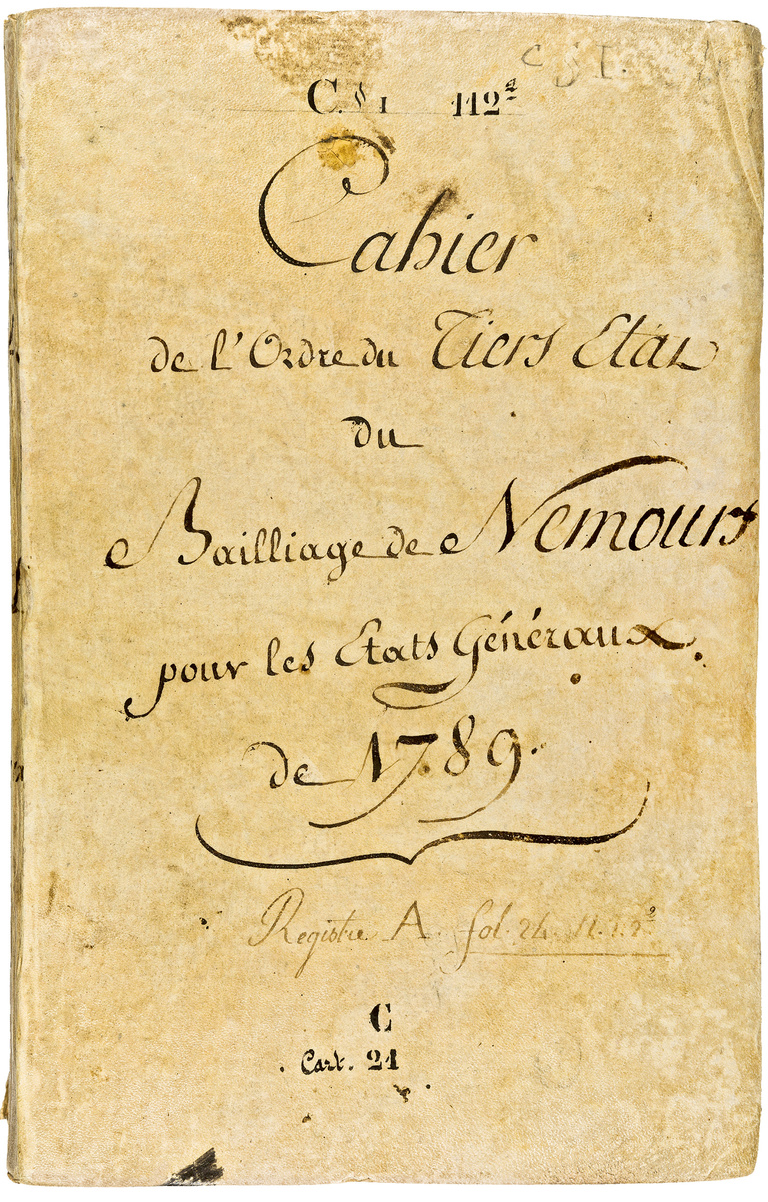 C § I.
C. § 1 112ᵃ
Cahier
de l'Ordre du Tiers Etat
du
Bailliage de Nemours
pour les Etats Généraux.
de 1789.
Registre A. fol. 24.
C
Cart. 21